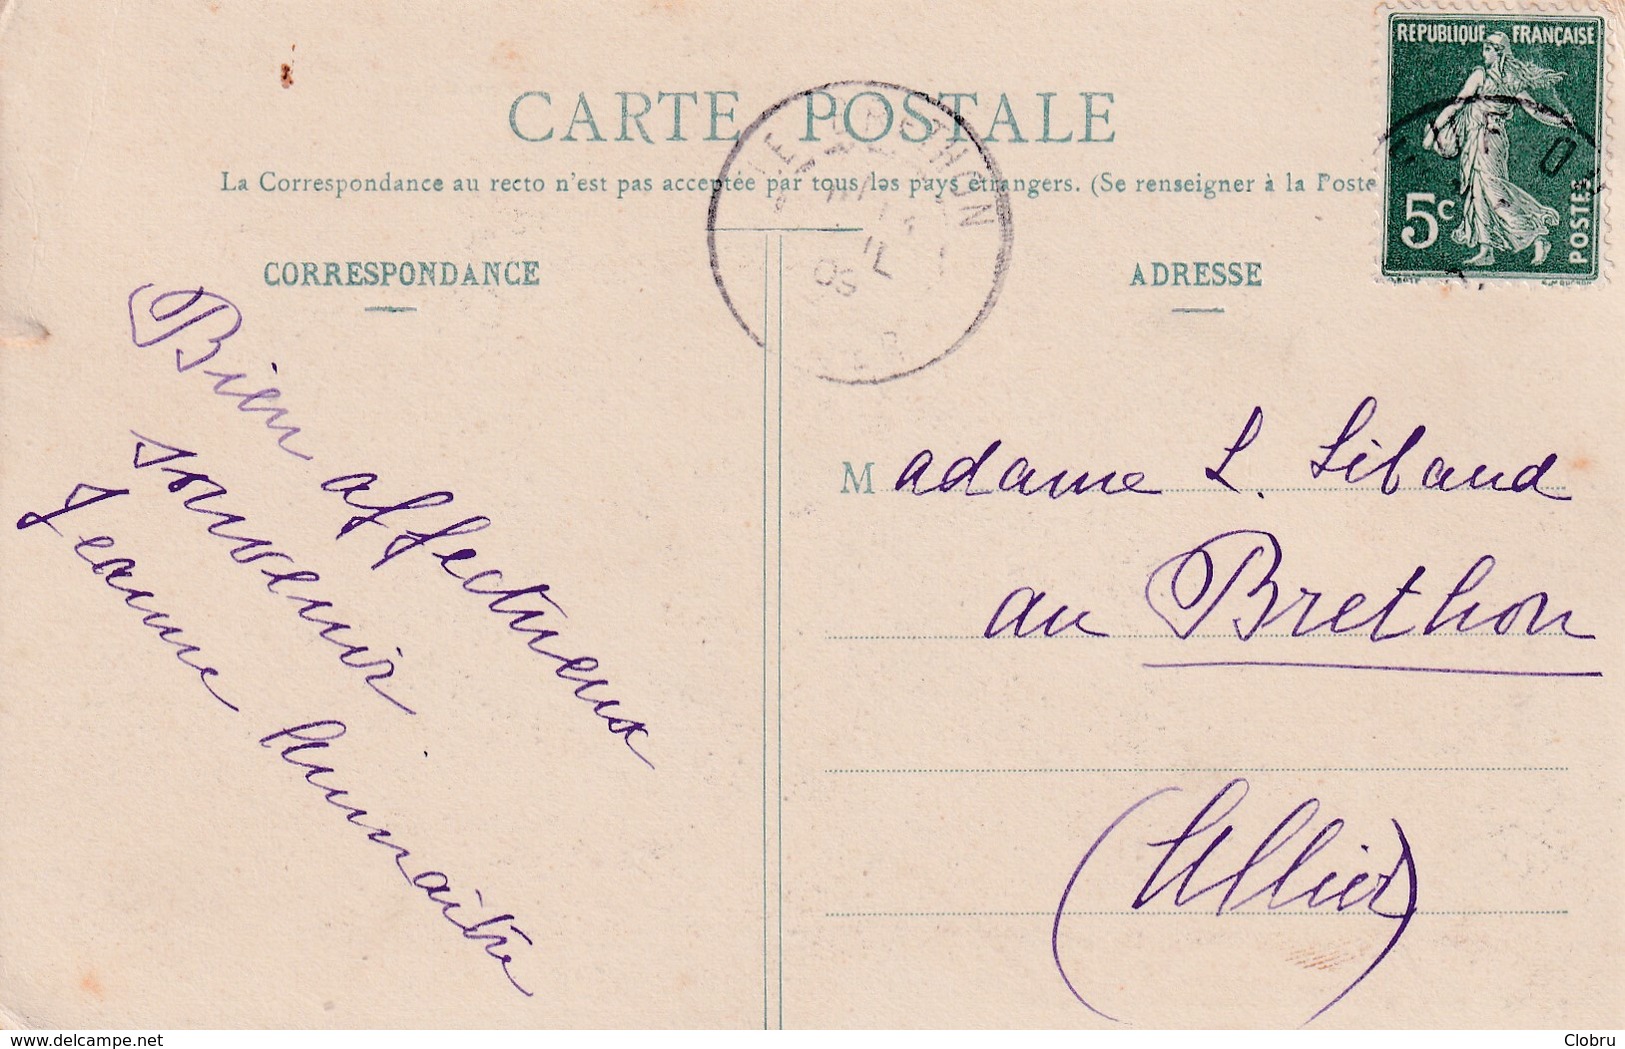 RÉPUBLIQUE FRANÇAISE
5c
POSTES
CARTE POSTALE
La Correspondance au recto n'est pas acceptée par tous les pays étrangers. (Se renseigner à la Poste
CORRESPONDANCE
ADRESSE
Bien affectueux
souvenir
Jeanne
Madame L. Libaud
au Brethon
(Allier)
delcampe.net
Clobru